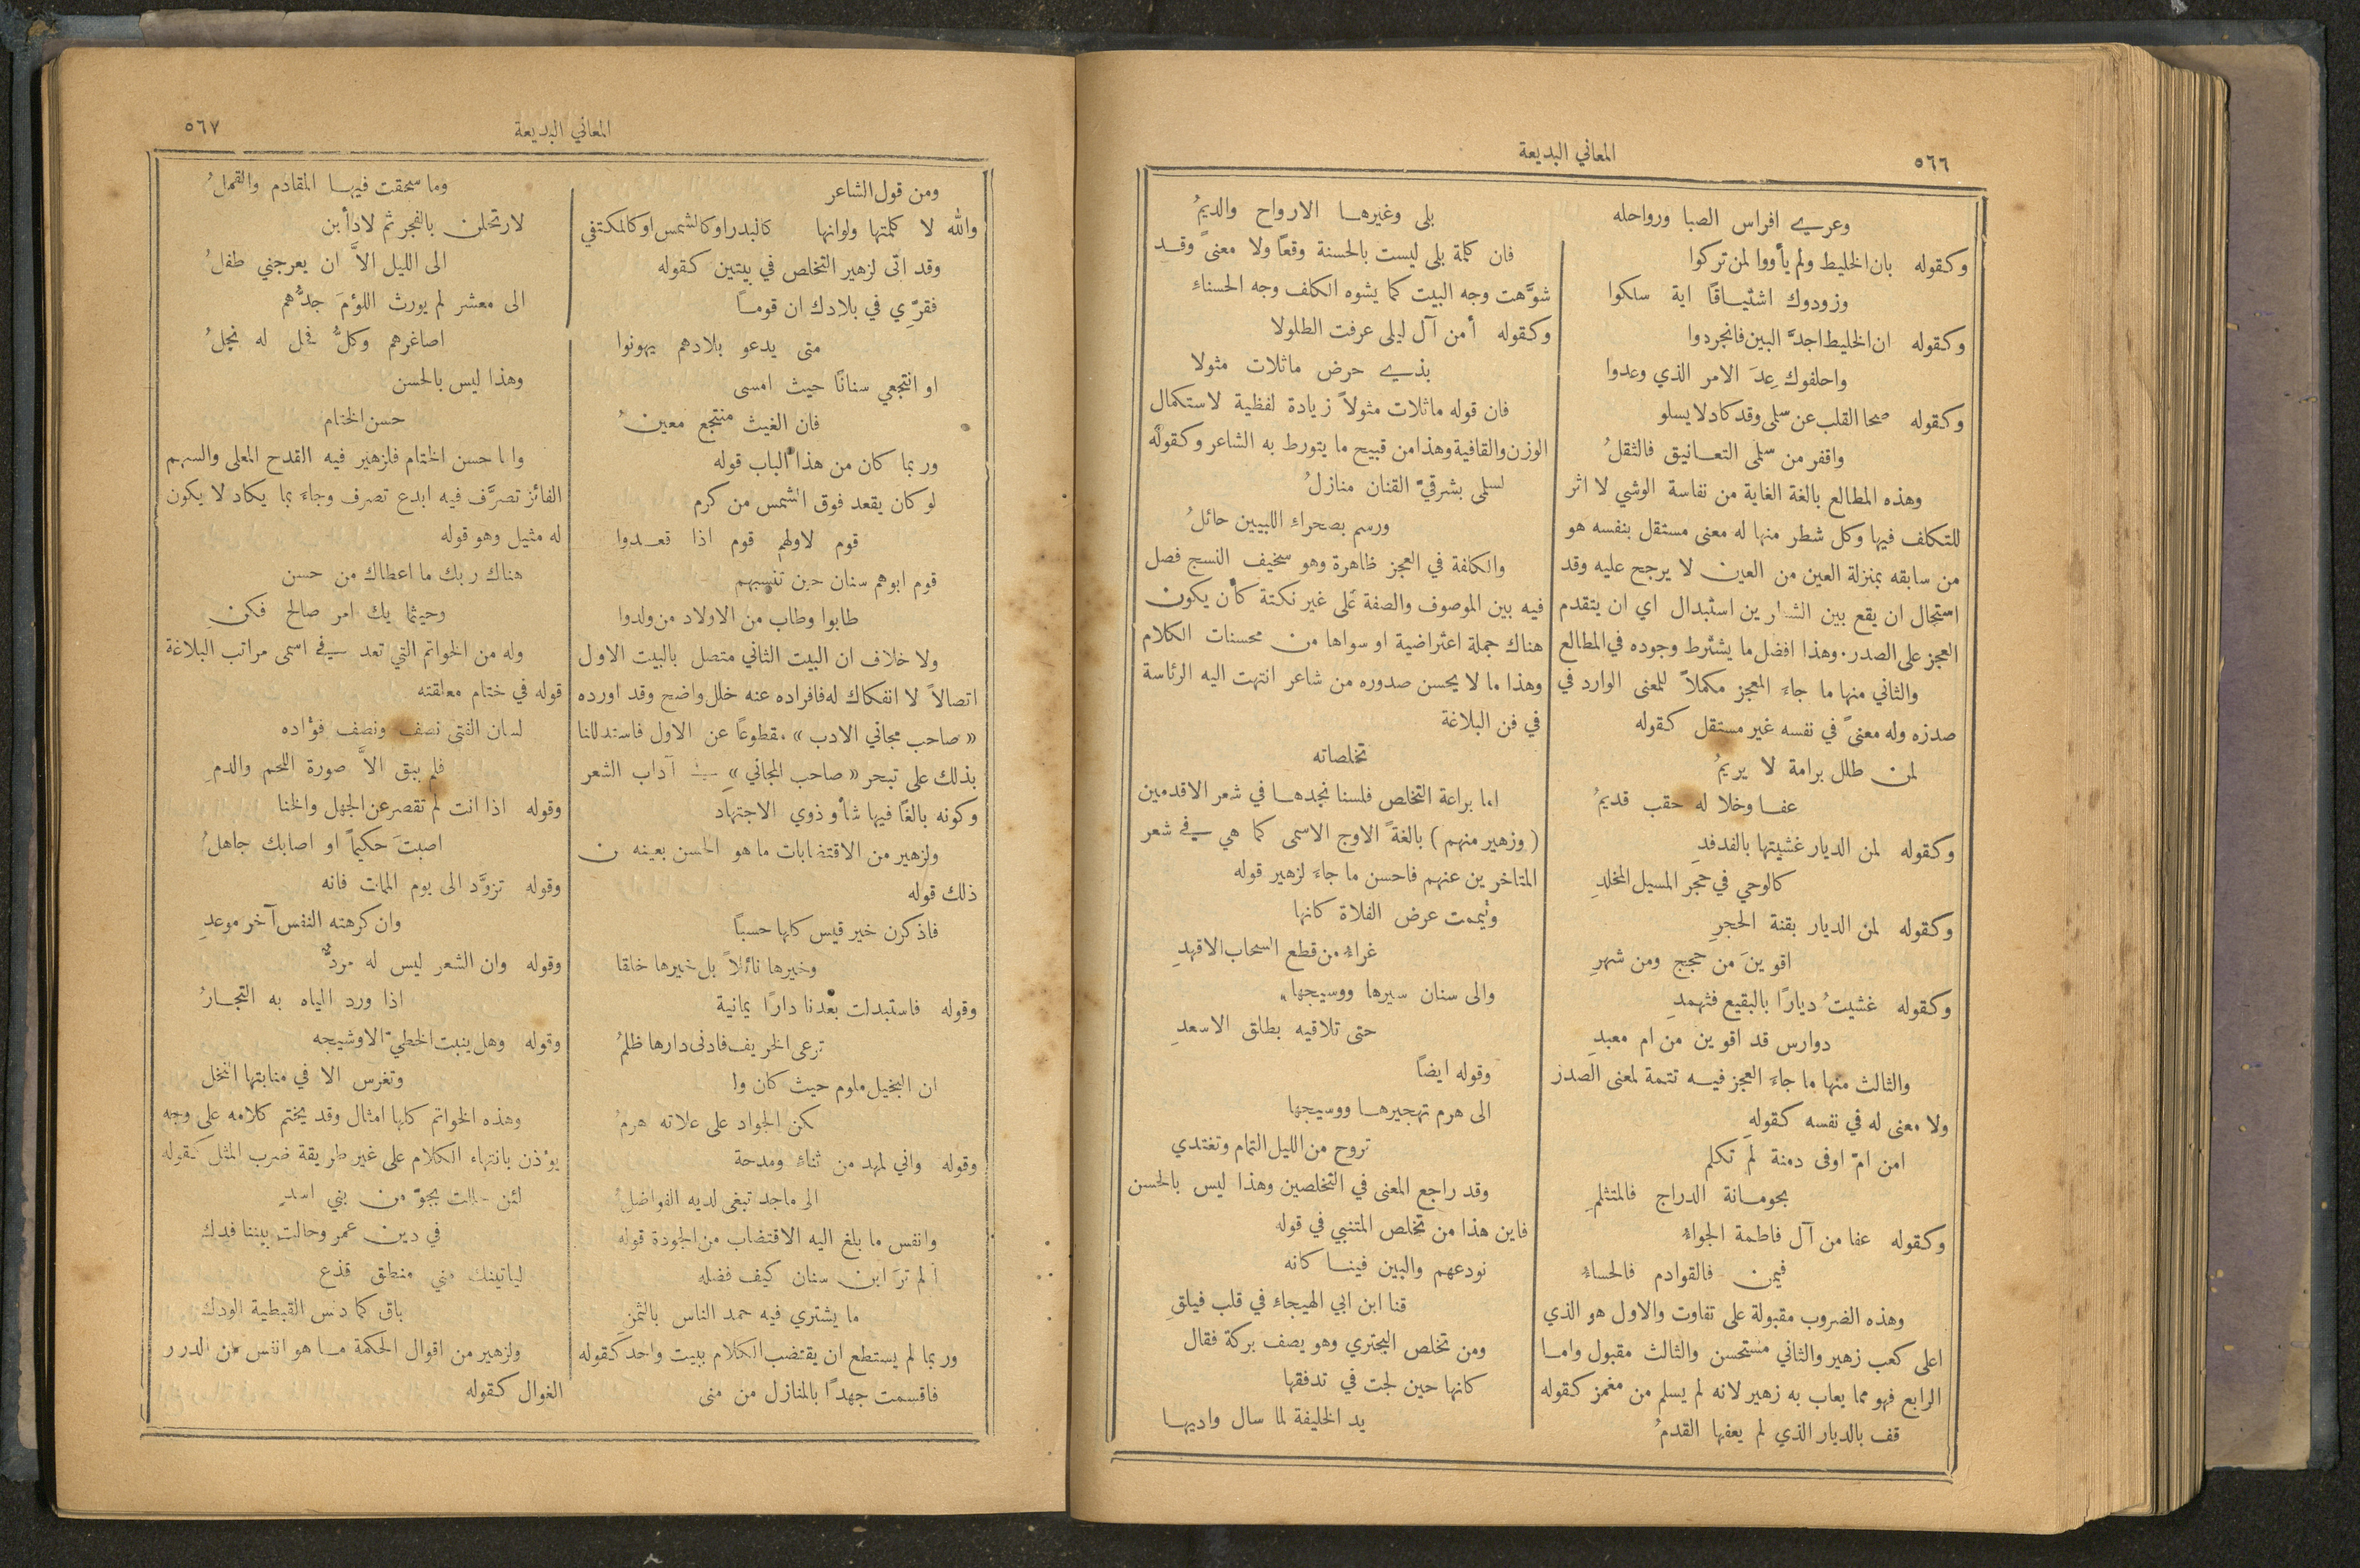 ٥٦٦
المعاني البديعة
وعري افراس الصبا ورواحله
وكقوله بان الخليط ولم يأووا لمن تركوا
وزودوك اشتياقًا اية سلكوا
وكقوله ان الخليط اجدَّ البين فانجردوا
واخلفوك عِدَ الامر الذي وعدوا
وكقوله صحا القلب عن سلمى وقد كاد لا يسلو
واقفر من سلمى التعانيق فالثقلُ
وهذه المطالع بالغة الغاية من نفاسة الوشي لا اثر
للتكلف فيها وكل شطر منها له معنى مستقل بنفسه هو
من سابقه بمنزلة العين من العين لا يرجح عليه وقد
استجال ان يقع بين الشطرين استبدال اي ان يتقدم
العجز على الصدر. وهذا افضل ما يشترط وجوده في المطالع
والثاني منها ما جاءَ المعجز مكملاً للمعنى الوارد في
صدره وله معنىً في نفسه غير مستقل كقوله
لمن طلل برامة لا يريمُ
عفا وخلا له حقب قديمُ
وكقوله لمن الديار غشيتها بالفدفدِ
كالوحي في حجر المسيل المخلدِ
وكقوله لمن الديار بقنة الحجرِ
اقوينَ من حجج ومن شهرِ
وكقوله غشيتُ ديارًا بالبقيع فثهمدِ
دوارس قد اقوين من ام معبدِ
والثالث منها ما جاءَ العجز فيه تتمة لمعنى الصدر
ولا معنى له في نفسه كقولهِ
امن امّ اوفى دمنة لم تكلم
بحومانة الدراج فالمتثلمِ
وكقوله عفا من آل فاطمة الجواءُ
فيمن فالقوادم فالحساءُ
وهذه الضروب مقبولة على تفاوت والاول هو الذي
اعلى كعب زهير والثاني مستحسن والثالث مقبول واما
الرابع فهو مما يعاب به زهير لانه لم يسلم من مغمز كقوله
قف بالديار الذي لم يعفها القدمُ
بلى وغيرها الارواح والديمُ
فان كلمة بلى ليست بالحسنة وقعًا ولا معنىً وقد
شوَّهت وجه البيت كما يشوه الكلف وجه الحسناءِ
وكقوله أمن آل ليلى عرفت الطلولا
بذي حرض ماثلات مثولا
فان قوله ماثلات مثولاً زيادة لفظية لاستكمال
الوزن والقافية وهذا من قبيح ما يتورط به الشاعر وكقوله
لسلمى بشرقيّ القنان منازلُ
ورسم بصحراءِ اللبيين حائلُ
والكلفة في العجز ظاهرة وهو سخيف النسج فصل
فيه بين الموصوف والصفة على غير نكتة كأن يكون
هناك جملة اعتراضية او سواها من محسنات الكلام
وهذا ما لا يحسن صدوره من شاعر انتهت اليه الرئاسة
في فن البلاغة
تخلصاته
اما براعة التخلص فلسنا نجدها في شعر الاقدمين
(وزهير منهم) بالغةً الاوج الاسمى كما هي في شعر
المتاخرين عنهم فاحسن ما جاءَ لزهير قوله
وتيممت عرض الفلاة كانها
غراءُ من قطع السحاب الاقهدِ
والى سنان سيرها ووسيجها
حتى تلاقيه بطلق الاسعدِ
وقوله ايضًا
الى هرم تهجيرها ووسيجها
تروح من الليل التمام وتغتدي
وقد راجع المعنى في التخلصين وهذا ليس بالحسن
فاين هذا من تخلص المتنبي في قوله
نودعهم والبين فينا كانه
قنا ابن ابي الهيجاءِ في قلب فيلقِ
ومن تخلص البحتري وهو يصف بركة فقال
كانها حين لجت في تدفقها
يد الخليفة لما سال واديها
٥٦٧
المعاني البديعة
ومن قول الشاعر
والله لا كلمتها ولوانها كالبدر او كالشمس او كالمكتفي
وقد اتى لزهير التخلص في بيتين كقوله
فقرّي في بلادك ان قومًا
متى يدعو بلادهم يهونوا
او انتجعي سنانًا حيث امسى
فان الغيث منتجع معينُ
وربما كان من هذا الباب قوله
لو كان يقعد فوق الشمس من كرم
قوم لاولهم قوم اذا قعدوا
قوم ابوهم سنان حين تنسبهم
طابوا وطاب من الاولاد من ولدوا
ولا خلاف ان البيت الثاني متصل بالبيت الاول
اتصالاً لا انفكاك له فافراده عنه خلل واضح وقد اورده
«صاحب مجاني الادب» مقطوعًا عن الاول فاستدللنا
بذلك على تبحر «صاحب المجاني» في آداب الشعر
وكونه بالغًا فيها شأو ذوي الاجتهاد
ولزهير من الاقتضابات ما هو الحسن بعينه من
ذلك قوله
فاذكرن خير قيس كلها حسبًا
وخيرها نائلاً بل خيرها خلقا
وقوله فاستبدلت بعدنا دارًا يمانية
ترعى الخريف فادنى دارها ظلمُ
ان البخيل ملوم حيث كان ولا
كن الجواد على علاته هرمُ
وقوله واني لمهد من ثناءِ ومدحة
الى ماجد تبغى لديه الفواضلُ
وانفس ما بلغ اليه الاقتضاب من الجودة قوله
ألم ترَ ابن سنان كيف فضله
ما يشتري فيه حمد الناس بالثمنِ
وربما لم يستطع ان يقتضب الكلام ببيت واحد كقوله
فاقسمت جهدًا بالمنازل من منى
وما سحقت فيها المقادم والقملُ
لارتحلن بالفجر ثم لادأبن
الى الليل الاَّ ان يعرجني طفلُ
الى معشر لم يورث اللؤمَ جدُّهم
اصاغرهم وكلُّ فحل له نجلُ
وهذا ليس بالحسن
حسن الختام
واما حسن الختام فلزهير فيه القدح المعلى والسهم
الفائز تصرَّف فيه ابدع تصرف وجاءَ بما يكاد لا يكون
له مثيل وهو قوله
هناك ربك ما اعطاك من حسن
وحيثما يك امر صالح فكنِ
وله من الخواتم التي تعد في اسمى مراتب البلاغة
قوله في ختام معلقته
لسان الفتى نصف ونصف فؤاده
فلم يبق الاَّ صورة اللحم والدمِ
وقوله اذا انت لم تقصر عن الجهل والخنا
اصبتَ حكيمًا او اصابك جاهلُ
وقوله تزوَّد الى يوم الممات فانه
وان كرهته النفس آخر موعدِ
وقوله وان الشعر ليس له مردٌّ
اذا ورد المياه به التجارُ
وقوله وهل ينبت الخطيّ الا وشيجه
وتغرس الا في منابتها النخل
وهذه الخواتم كلها امثال وقد يختم كلامه على وجه
يؤذن بانتهاء الكلام على غير طريقة ضرب المثل كقوله
لئن حللت بجوّ من بني اسدِ
في دين عمر وحالت بيننا فدك
لياتينك مني منطق قذع
باق كما دنس القبطية الودك
ولزهير من اقوال الحكمة ما هو انفس من الدرر
الغوال كقوله